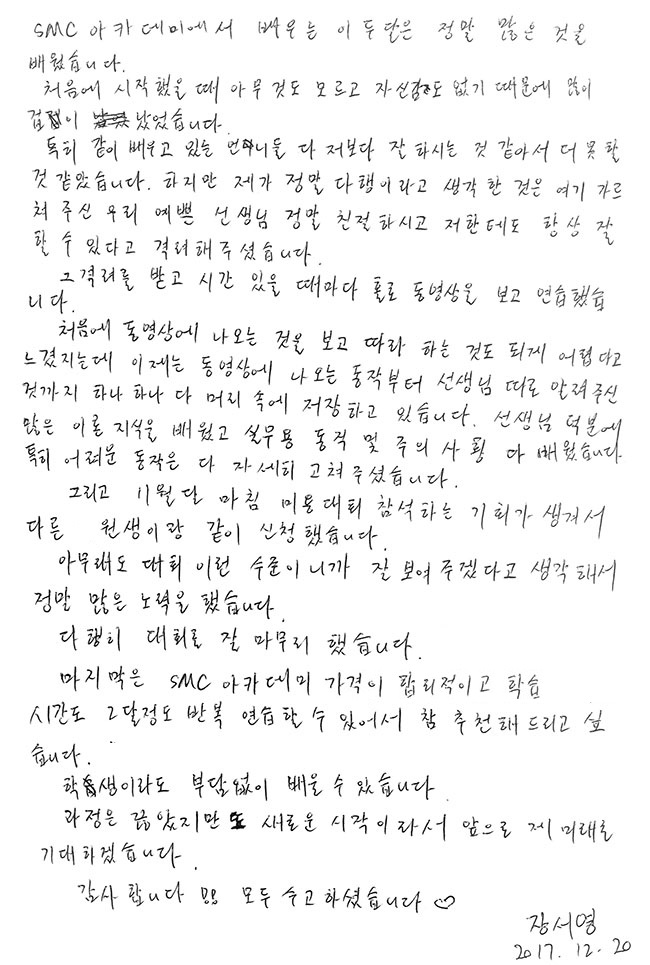 SMC 아카데미에서 배우는 이 두 달은 정말 많은 것을
배웠습니다.
처음에 시작했을 때 아무것도 모르고 자신감도 없기 때문에 많이
겁이 났었습니다.
특히 같이 배우고 있는 언니들 다 저보다 잘 하시는 것 같아서 더 못 할
것 같았습니다. 하지만 제가 정말 다행이라고 생각한 것은 여기 가르
쳐 주신 우리 예쁜 선생님 정말 친절하시고 저한테도 항상 잘
할 수 있다고 격려해주셨습니다.
그 격려를 받고 시간 있을 때마다 홀로 동영상을 보고 연습했습
니다.
처음에 동영상에 나오는 것을 보고 따라 하는 것도 되게 어렵다고
느꼈지는데 이제는 동영상에 나오는 동작부터 선생님 따로 알려주신
것까지 하나 하나 다 머리 속에 저장하고 있습니다. 선생님 덕분에
많은 이론 지식을 배웠고 실무용 동작 및 주의 사황 다 배웠습니다.
특히 어려운 동작은 다 자세히 고쳐 주셨습니다.
그리고 11월달 마침 미용대회 참석하는 기회가 생겨서
다른 원생이랑 같이 신청했습니다.
아무래도 대회 이런 수준이니까 잘 보여 주겠다고 생각해서
정말 많은 노력을 했습니다.
다행히 대회를 잘 마무리 했습니다.
마지막은 SMC 아카데미 가격이 합리적이고 학습
시간도 2달정도 반복 연습할 수 있어서 참 추천해 드리고 싶
습니다.
학생이라도 부담없이 배울 수 있습니다.
과정은 끝났지만 또 새로운 시작이라서 앞으로 제 미래를
기대하겠습니다.
감사합니다 모두 수고하셨습니다 ♡
장서영
2017. 12. 20